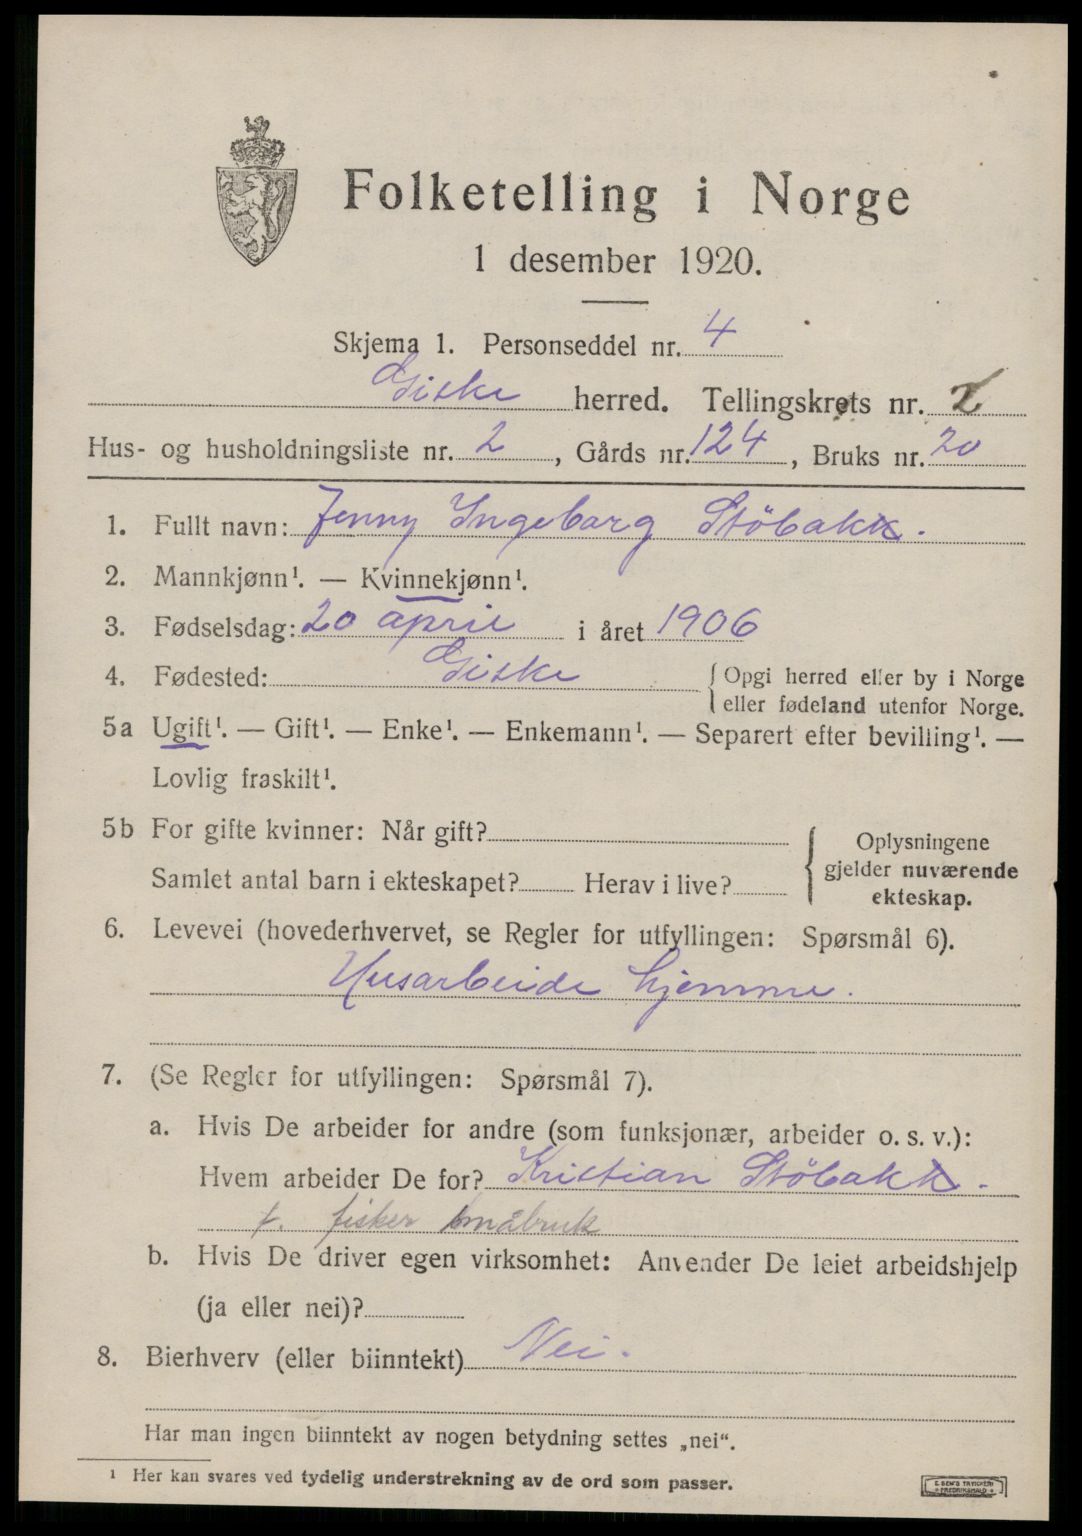 Folketelling i Norge
1 desember 1920.
Skjema 1. Personseddel nr. 4
Giske herred. Tellingskrets nr. 2
Hus- og husholdningsliste nr. 2, Gårds nr. 124, Bruks nr. 20
1. Fullt navn: Jenny Ingeborg Stöbakk.
2. Mannkjønn¹. — Kvinnekjønn¹.
3. Fødselsdag: 20 april i året 1906
4. Fødested: Giske { Opgi herred eller by i Norge
eller fødeland utenfor Norge.
5a Ugift¹. — Gift¹. — Enke¹. — Enkemann¹. — Separert efter bevilling¹. —
Lovlig fraskilt¹.
5b For gifte kvinner: Når gift?
Samlet antal barn i ekteskapet? Herav i live?
{ Oplysningene
gjelder nuværende
ekteskap.
6. Levevei (hovederhvervet, se Regler for utfyllingen: Spørsmål 6).
Husarbeide hjemme.
7. (Se Regler for utfyllingen: Spørsmål 7).
a. Hvis De arbeider for andre (som funksjonær, arbeider o. s. v.):
Hvem arbeider De for? Kristian Stöbakk.
f. fisker småbruk
b. Hvis De driver egen virksomhet: Anvender De leiet arbeidshjelp
(ja eller nei)?
8. Bierhverv (eller biinntekt) Nei.
Har man ingen biinntekt av nogen betydning settes „nei“.
¹ Her kan svares ved tydelig understrekning av de ord som passer.
E. SEM'S TRYKKERI
FREDRIKSHALD